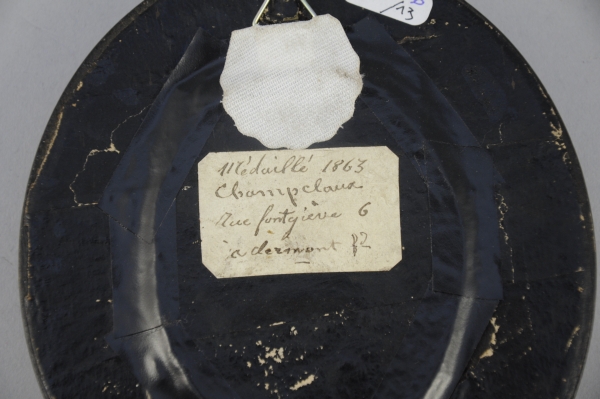 /13
Médaillé 1863
Champclaux
Rue fontgiève 6
à clermont f2